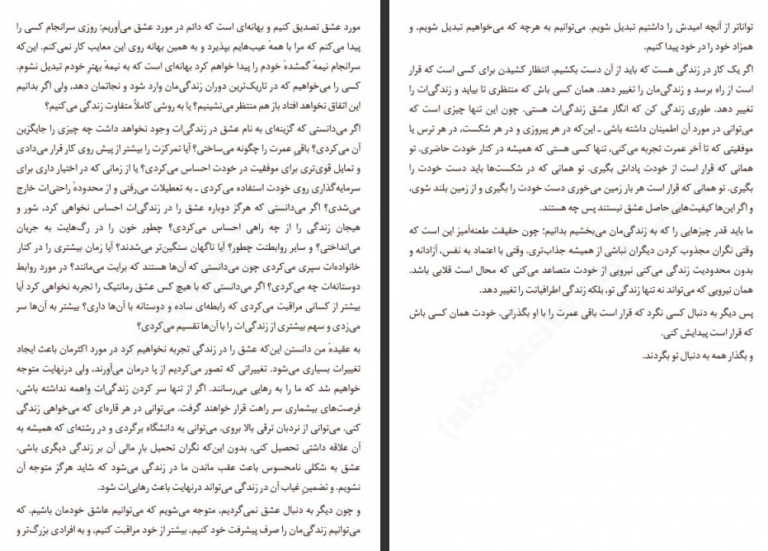 مورد عشق تصدیق کنیم و بهانه‌ای است که دائم در مورد عشق می‌آوریم: روزی سرانجام کسی را
پیدا می‌کنم که مرا با همهٔ عیب‌هایم بپذیرد و به همین بهانه روی این معایب کار نمی‌کنم. این‌که
سرانجام نیمهٔ گمشدهٔ خودم را پیدا خواهم کرد بهانه‌ای است که به نیمهٔ بهترِ خودم تبدیل نشوم.
کسی را می‌خواهیم که در تاریک‌ترین دوران زندگی‌مان وارد شود و نجاتمان دهد، ولی اگر بدانیم
این اتفاق نخواهد افتاد باز هم منتظر می‌نشینیم؟ یا به روشی کاملاً متفاوت زندگی می‌کنیم؟
اگر می‌دانستی که گزینه‌ای به نام عشق در زندگی‌ات وجود نخواهد داشت چه چیزی را جایگزین
آن می‌کردی؟ باقی عمرت را چگونه می‌ساختی؟ آیا تمرکزت را بیشتر از پیش روی کار قرار می‌دادی
و تمایل قوی‌تری برای موفقیت در خودت احساس می‌کردی؟ یا از زمانی که در اختیار داری برای
سرمایه‌گذاری روی خودت استفاده می‌کردی ـ به تعطیلات می‌رفتی و از محدودهٔ راحتی‌ات خارج
می‌شدی؟ اگر می‌دانستی که هرگز دوباره عشق را در زندگی‌ات احساس نخواهی کرد، شور و
هیجان زندگی را از چه راهی احساس می‌کردی؟ چطور خون را در رگ‌هایت به جریان
می‌انداختی؟ و سایر روابطت چطور؟ آیا ناگهان سنگین‌تر می‌شدند؟ آیا زمان بیشتری را در کنار
خانواده‌ات سپری می‌کردی چون می‌دانستی که آن‌ها هستند که برایت می‌مانند؟ در مورد روابط
دوستانه‌ات چه می‌کردی؟ اگر می‌دانستی که با هیچ کس عشق رمانتیک را تجربه نخواهی کرد آیا
بیشتر از کسانی مراقبت می‌کردی که رابطه‌ای ساده و دوستانه با آن‌ها داری؟ بیشتر به آن‌ها سر
می‌زدی و سهم بیشتری از زندگی‌ات را با آن‌ها تقسیم می‌کردی؟
به عقیدهٔ من دانستن این‌که عشق را در زندگی تجربه نخواهیم کرد در مورد اکثرمان باعث ایجاد
تغییرات بسیاری می‌شود. تغییراتی که تصور می‌کردیم از پا درمان می‌آورند، ولی درنهایت متوجه
خواهیم شد که ما را به رهایی می‌رسانند. اگر از تنها سر کردن زندگی‌ات واهمه نداشته باشی،
فرصت‌های بیشماری سر راهت قرار خواهند گرفت. می‌توانی در هر قاره‌ای که می‌خواهی زندگی
کنی. می‌توانی از نردبان ترقی بالا بروی. می‌توانی به دانشگاه برگردی و در رشته‌ای که همیشه به
آن علاقه داشتی تحصیل کنی، بدون این‌که نگران تحمیل بارِ مالی آن بر زندگی دیگری باشی.
عشق به شکلی نامحسوس باعث عقب ماندن ما در زندگی می‌شود که شاید هرگز متوجه آن
نشویم. و تضمینِ غیاب آن در زندگی می‌تواند درنهایت باعث رهایی‌ات شود.
و چون دیگر به دنبال عشق نمی‌گردیم، متوجه می‌شویم که می‌توانیم عاشق خودمان باشیم. که
می‌توانیم زندگی‌مان را صرف پیشرفت خود کنیم، بیشتر از خود مراقبت کنیم، و به افرادی بزرگ‌تر و
تواناتر از آنچه امیدش را داشتیم تبدیل شویم. می‌توانیم به هرچه که می‌خواهیم تبدیل شویم، و
همزاد خود را در خود پیدا کنیم.
اگر یک کار در زندگی هست که باید از آن دست بکشیم، انتظار کشیدن برای کسی است که قرار
است از راه برسد و زندگی‌مان را تغییر دهد. همان کسی باش که منتظری تا بیاید و زندگی‌ات را
تغییر دهد. طوری زندگی کن که انگار عشق زندگی‌ات هستی. چون این تنها چیزی است که
می‌توانی در مورد آن اطمینان داشته باشی ـ این‌که در هر پیروزی و در هر شکست، در هر ترس یا
موفقیتی که تا آخر عمرت تجربه می‌کنی، تنها کسی هستی که همیشه در کنار خودت حاضری. تو
همانی که قرار است از خودت پاداش بگیری. تو همانی که در شکست‌ها باید دست خودت را
بگیری. تو همانی که قرار است هر بار زمین می‌خوری دست خودت را بگیری و از زمین بلند شوی،
و اگر این‌ها کیفیت‌هایی حاصل عشق نیستند پس چه هستند.
ما باید قدر چیزهایی را که به زندگی‌مان می‌بخشیم بدانیم؛ چون حقیقت طعنه‌آمیز این است که
وقتی نگران مجذوب کردن دیگران نباشی از همیشه جذاب‌تری. وقتی با اعتماد به نفس، آزادانه و
بدون محدودیت زندگی می‌کنی نیرویی از خودت متصاعد می‌کنی که محال است قلابی باشد.
همان نیرویی که می‌تواند نه تنها زندگی تو، بلکه زندگی اطرافیانت را تغییر دهد.
پس دیگر به دنبال کسی نگرد که قرار است باقی عمرت را با او بگذرانی. خودت همان کسی باش
که قرار است پیدایش کنی.
و بگذار همه به دنبال تو بگردند.